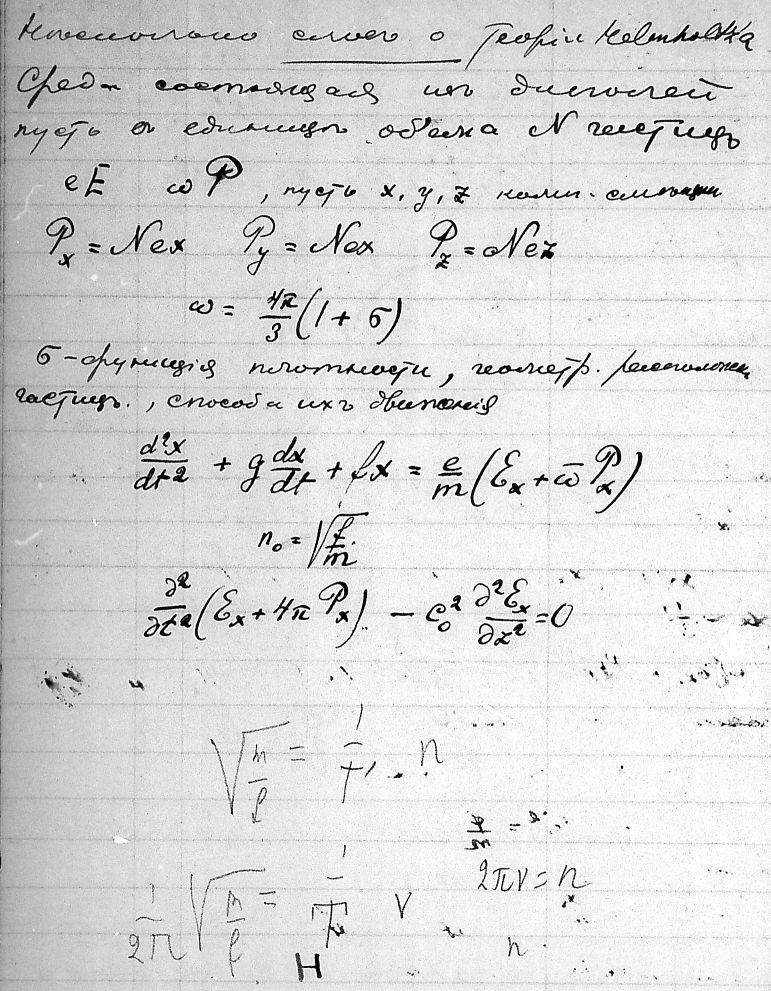 Несколько словъ о Теоріи Helmholtz'a
Среда состоящая изъ диполей
пусть въ единицѣ объема N частицъ
eE ω P, пусть x, y, z комп. смѣщения
P_x = Nex P_y = Nex P_z = Nez
ω = 4π/3 (1 + σ)
σ - функція плотности, геометр. расположен.
частицъ., способа ихъ движенія
d²x/dt² + g dx/dt + fx = e/m (E_x + ω̄ P_x)
n₀ = √(f/m)
∂²/∂t² (E_x + 4π P_x) − c₀² ∂²E_x/∂z² = 0
√(m/f) = 1/T, n
2πν = n
1/2π √(m/f) = 1/T ν
n
H